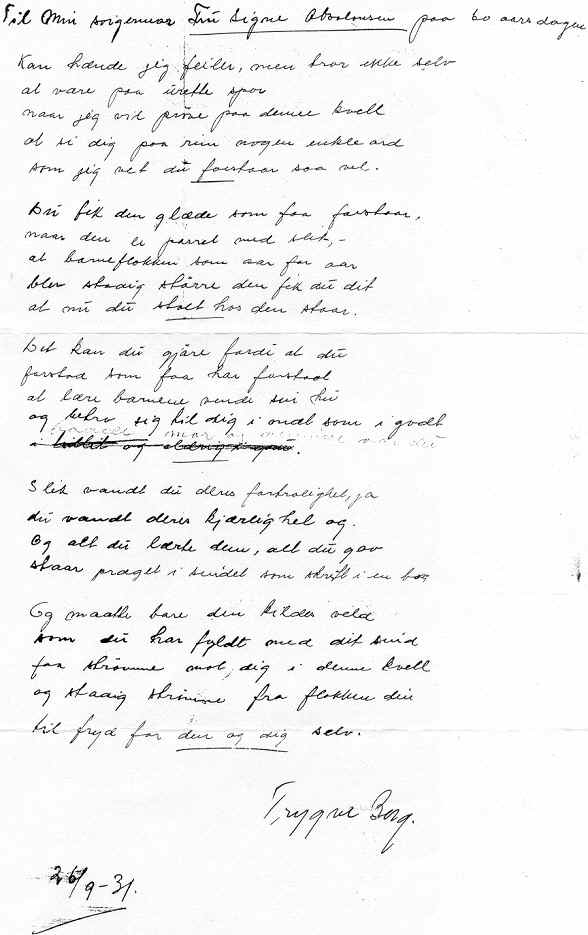 Til Min svigermor Frü Signe Absalonsen paa 60 aarsdagen
Kan hænde jeg feiler, men tror ikke selv
at være paa ürette spor
naar jeg vil prøve paa denne kvell
at si dig paa rim nogen enkle ord
som jeg vet dü forstaar saa vel.
Dü fik den glæde som faa forstaar,
naar den er parret med slit, -
at barneflokken som aar for aar
blev stadig större den fik dü dit
at nü dü stolt hos den staar.
Det kan dü gjöre fordi at dü
forstod som faa har forstaat
at lære barnene vende sin hü
og betro sig til dig i ondt som i godt
i
Slik vandt dü deres fortrolighet, ja
dü vandt deres kjærlighet og.
Og alt dü lærte dem, alt dü gav
staar præget i sindet som skrift i en bog
Og maatte bare den kildes veld
som dü har fyldt med dit sind
faa strömme mot dig i denne kvell
og stadig strömme fra flokken din
til fryd for den og dig selv.
Trygve Borg.
26/9-31.